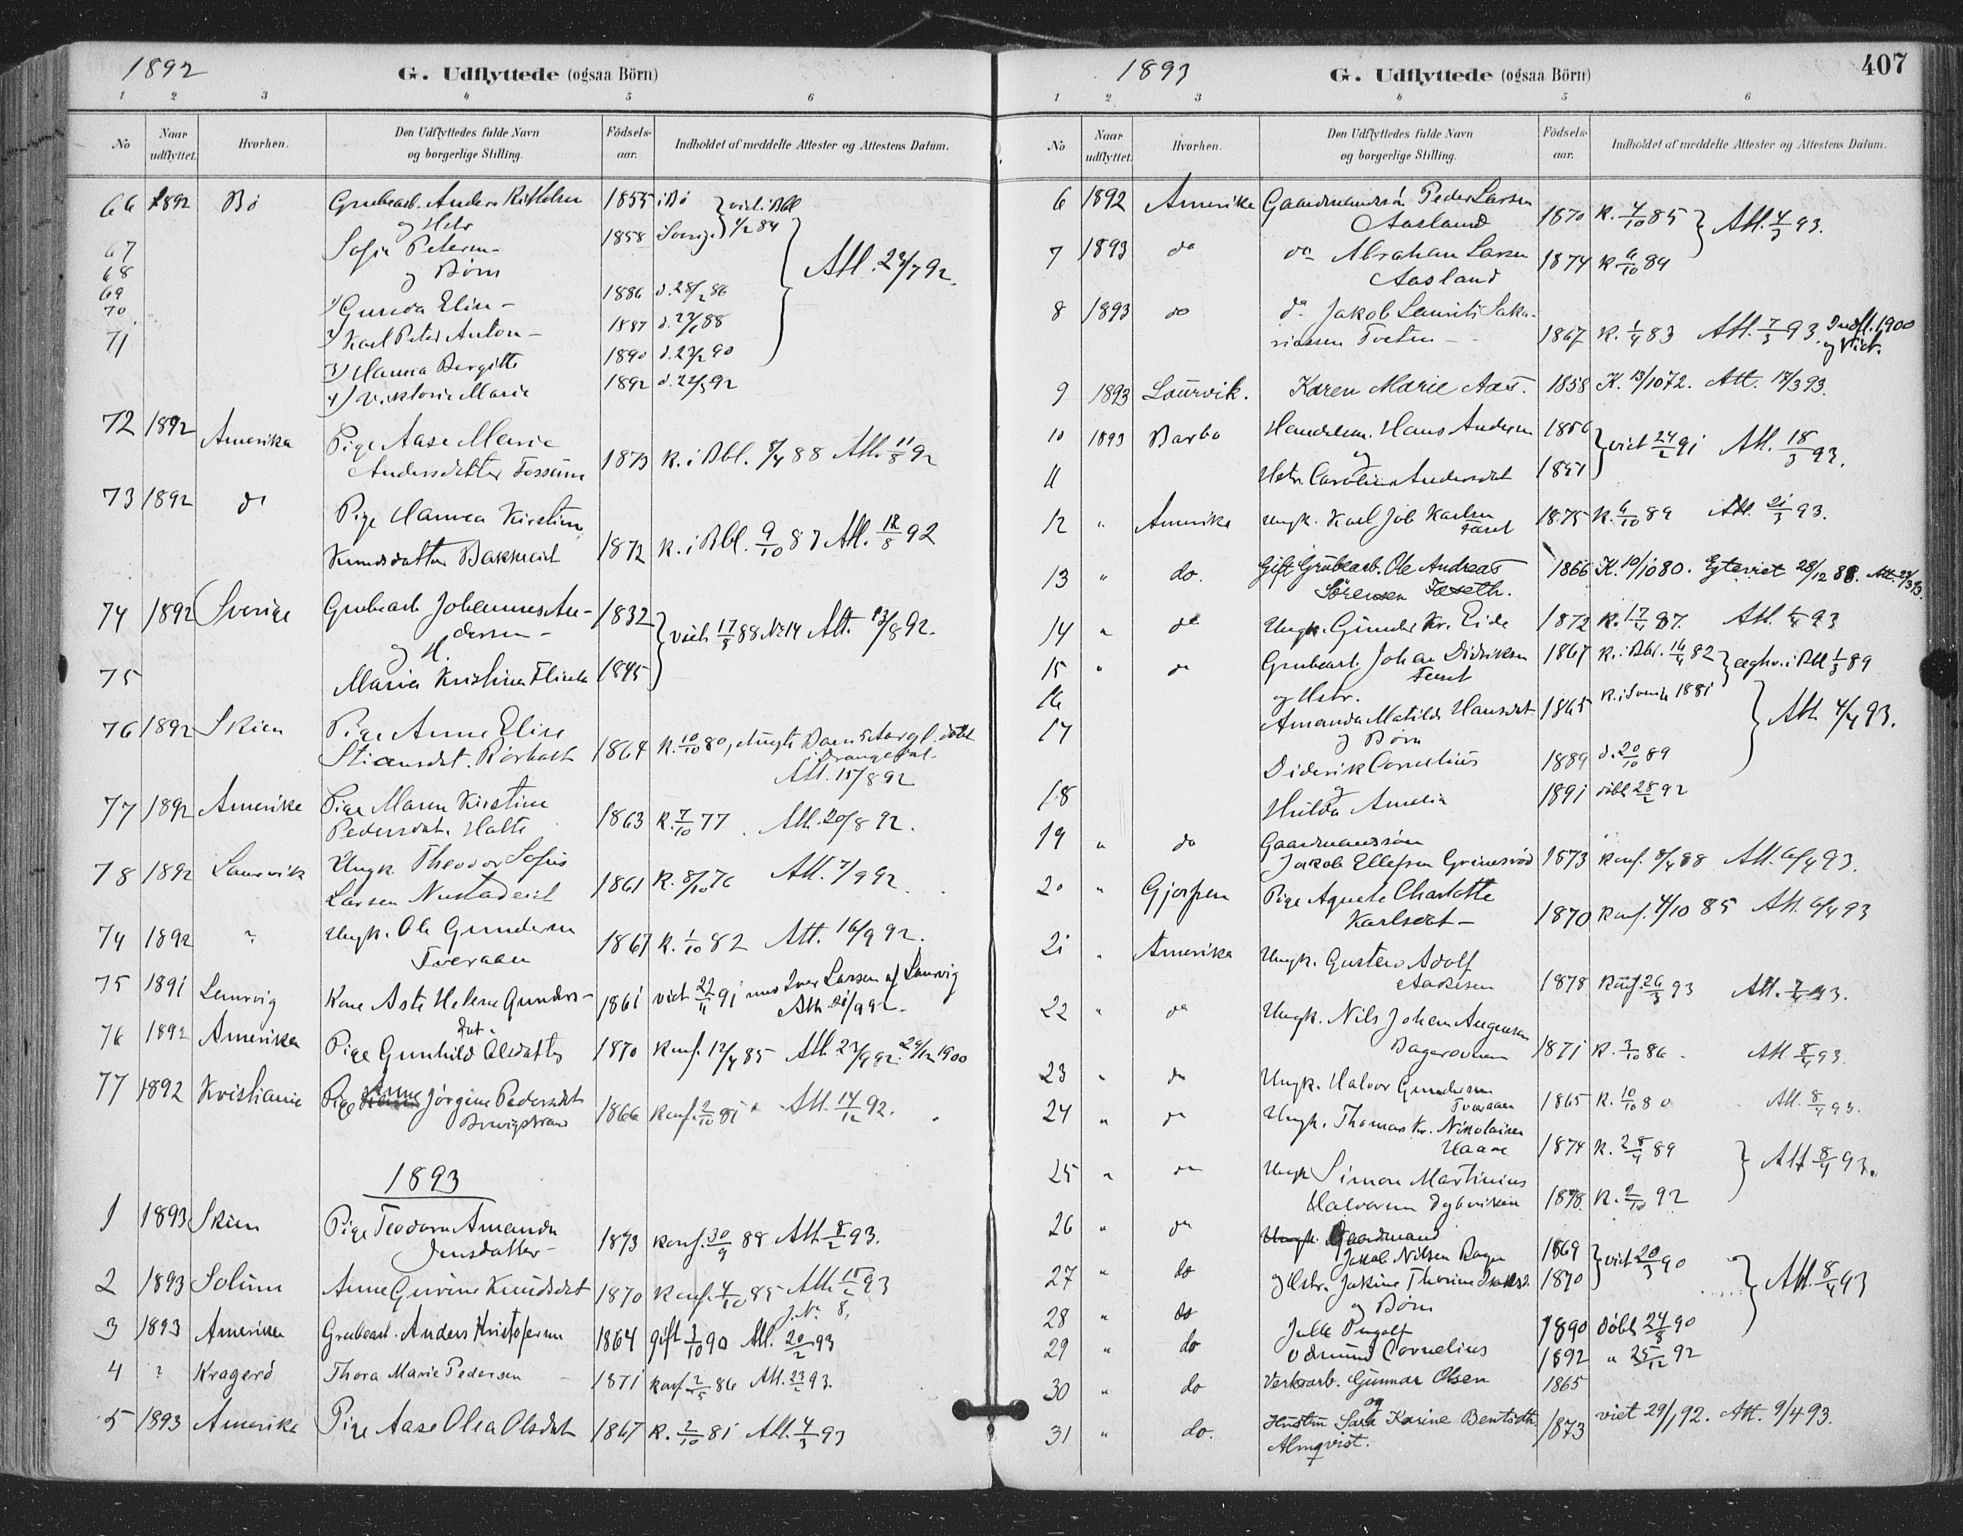 1892
G. Udflyttede (ogsaa Börn)
1 2 3 4 5 6
No
Naar udflyttet.
Hvorhen.
Den Udflyttedes fulde Navn og borgerlige Stilling.
Födsels-aar.
Indholdet af meddelte Attester og Attestens Datum.
66 1892 Bø Grubearb. Anders 1855 i Bø viet i Bbl
og Hstr
67 Sofia Petersen 1858 Sverige 84
68 og Børn Att. 23/7 92.
69 1) Gunda Elise - 1886 d. 28/2 86
70 2) Karl Peter Anton - 1887 88
71 3) Hanna Bergitte 1890 90
4) Viktoria Marie 1892 92
72 1892 Amerika Pige Aase Marie
Andersdatter Fossum 1873 K. i Bbl. 8/4 88 Att. 11/8 92
73 1892 do Pige Hanna Kirstine
Knudsdatter 1872 K. i Bbl. 9/10 87 Att. 18/8 92
74 1892 Sverige Grubearb Johannes An-
dersen - 1832 viet 88 No 14 Att. 13/8 92.
og H.
75 Maria Kristina 1845
76 1892 Skien Pige Anne Elise
Stiansdt. Rørholt 1864 K. 10/10 80, døbt
i Drangedal.
Att. 15/8 92
77 1892 Amerika Pige Maren Kirstine
Pedersdat. Halte 1863 K. 7/10 77. Att. 20/8 92.
78 1892 Laurvik Ungk. Theodor Sofus
Larsen 1861 K. 8/10 76 Att. 7/9 92.
74 1892 " Ungk. Ole Gundersen
Tveraaen 1867 K. 1/10 82 Att. 16/9 92.
75 1891 Laurvig Kone Aste Helene Gunders-
dat. 1861 viet 22/11 91 med Iver Larsen af Laurvig
Att. 21/9 92.
76 1892 Amerika Pige Gunhild Olsdatter 1870 Konf. 12/4 85 Att. 23/9 92. 29/12 1900
77 1892 Kristiania Pige Anne Jørgine Pedersdat
1866 Konf. 2/10 81 Att. 14/12 92.
1893
1 1893 Skien Pige Teodora Amanda
Jensdatter - 1873 Konf. 30/9 88 Att. 8/2 93.
2 1893 Solum Anne Gurine Knudsdat 1870 Konf. 4/10 85 Att. 15/2 93
J. No 8,
3 1893 Amerika Grubearb. Anders Kristofersen 1864 gift 3/10 90 Att. 20/2 93
4 " Kragerø Thora Marie Pedersen 1871 Konf. 2/5 86 Att. 23/2 93.
5 1893 Amerika Pige Aase Olea Olsdat 1867 K. 2/10 81 Att. 4/3 93
1893
G. Udflyttede (ogsaa Börn)
407
1 2 3 4 5 6
No
Naar udflyttet.
Hvorhen.
Den Udflyttedes fulde Navn og borgerlige Stilling.
Födsels-aar.
Indholdet af meddelte Attester og Attestens Datum.
6 1892 Amerika Gaardmandssøn Peder Larsen
Aasland 1870 K. 4/10 85 Att. 4/3 93.
7 1893 do do Abraham Larsen
Aasland 1874 K 6/10 89
8 1893 do do Jakob Laurits Saka-
riassen Tveten 1867 K. 1/4 83 Att. 7/3 93. Indfl. 1900
og viet.
9 1893 Laurvik. Karen Marie Aas. 1858 K. 13/10 72. Att. 17/3 93.
10 1893 Barbo Handelsm. Hans Andersen 1856 viet 24/2 91 Att. 18/3 93.
og
11 Hstr. Caroline Andersdat
12 " Amerika Ungk. Karl Job Karlsen
1875 K. 6/10 89 Att. 21/3 93.
13 " do. Gift Grubearb. Ole Andreas
Sørensen Faseth. 1866 K. 10/10 80. Egteviet 28/12 88. Att. 23/3 93.
14 " do Ungk. Gunder Kr. Eide 1872 K. 17/4 87. Att. 93
15 " do Grubearb. Johan Didriksen 1867 K. i Bbl. 16/4 82 i Bbl 1/3 89
16 og Hstr.
Amanda Matilde Hansdat 1865 1881 Att 4/4 93.
17 og Børn
Diderik Cornelius 1889 d. 20/10 89
18 og
Hulda Amelia 1891 døbt 28/2 92
19 " do Gaardmandssøn
Jakob Ellefsen Grimsrød 1873 Konf. 8/4 88 Att. 6/4 93.
20 " Gjerpen Pige Agnete Charlotte
Karlsdat - 1870 Konf. 4/10 85 Att. 6/4 93
21 " Amerika Ungk. Gustav Adolf
1878 Konf. 26/3 93 Att. 7/4 93.
22 " do Ungk. Nils Johan Augensen
1871 K. 3/10 86 Att. 8/4 93.
23 " do Ungk. Halvor Gundersen
Tveraaen 1865 K. 10/10 80 Att. 8/4 93.
24 " do Ungk. Thomas Kr. Nikolaisen
1874 K. 28/4 89 Att 8/4 93.
25 " do Ungk Simon Martinius
Halvorsen 1878. K. 2/10 92
26 " do Ungk. Gaardmand
Jakob Nilsen 1869 viet 20/3 90
27 " do og Hstr. Jakine Thorine 1870 Att. 8/4 93
28 " do og Børn
1890 døbt 24/8 90
29 " do Cornelius 1892 " 25/12 92
30 " do Verksarb. Gunnar Olsen 1865
og
31 " do. Hustru Sara Karine Bentsdtr. 1873 viet 29/1 92. Att. 9/4 93.
Almqvist.